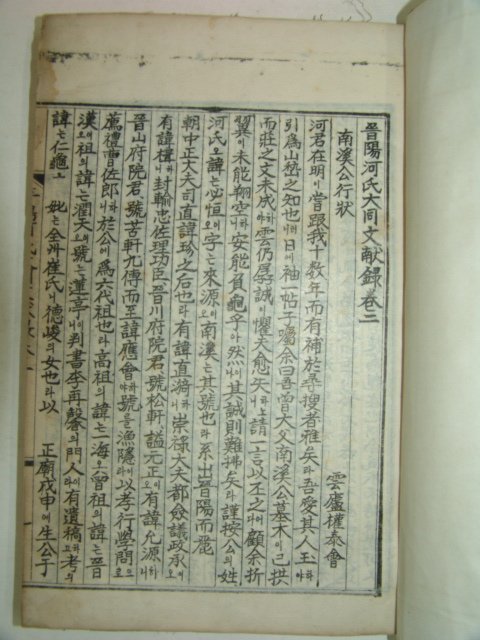 晋陽河氏大同文献録卷二
南溪公行狀
雲廬權泰會
河君在明이嘗跟我十数年而有補於尋搜者雅矣라吾愛其人玉하야
引爲山㙜之知也러니日에袖一帖子囑余曰吾曾大父南溪公墓木이已拱
而莊之文未成하야雲仍孱誠이懼夫愈矣니하노請一言以丕之대어顧余折
翼이未能翺空니하安能負龜乎아然이나其誠則難拂矣라謹按公의姓
河氏오諱는必恒이오字는來源이오南溪는其號也라系出晋陽而麗
朝中正大夫司直諱珍之后也라有諱直漪니하崇祿大夫都僉議政承이오
有諱檝니하封輸忠佐理功臣晋川府院君号松軒謚元正이오有諱允源니하
晋山府院君号苦軒九傳而至諱應會하야號을漁隱라이以孝行學問으로
薦禮曹佐郎니하於公에爲六代祖也라高祖의諱는一海오曾祖의諱는晋
漢이오祖의諱는濯天오이號는蓮亭니이判書李再馨의門人라이有遺稿하며考의
諱는仁龜요 妣는全州崔氏니德峻의女也라以 正廟戊申에生公于